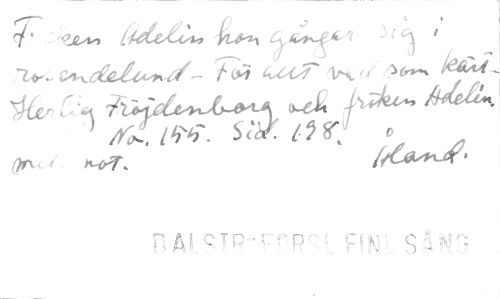 Fröken Adelin hon gångar sig i
rosendelund - För allt vad som kärt -
Hertig Fröjdenborg och fröken Adelin
No. 155. Sid. 198.
med not. Åland.
DALSTR-FORSL FINL SÅNG